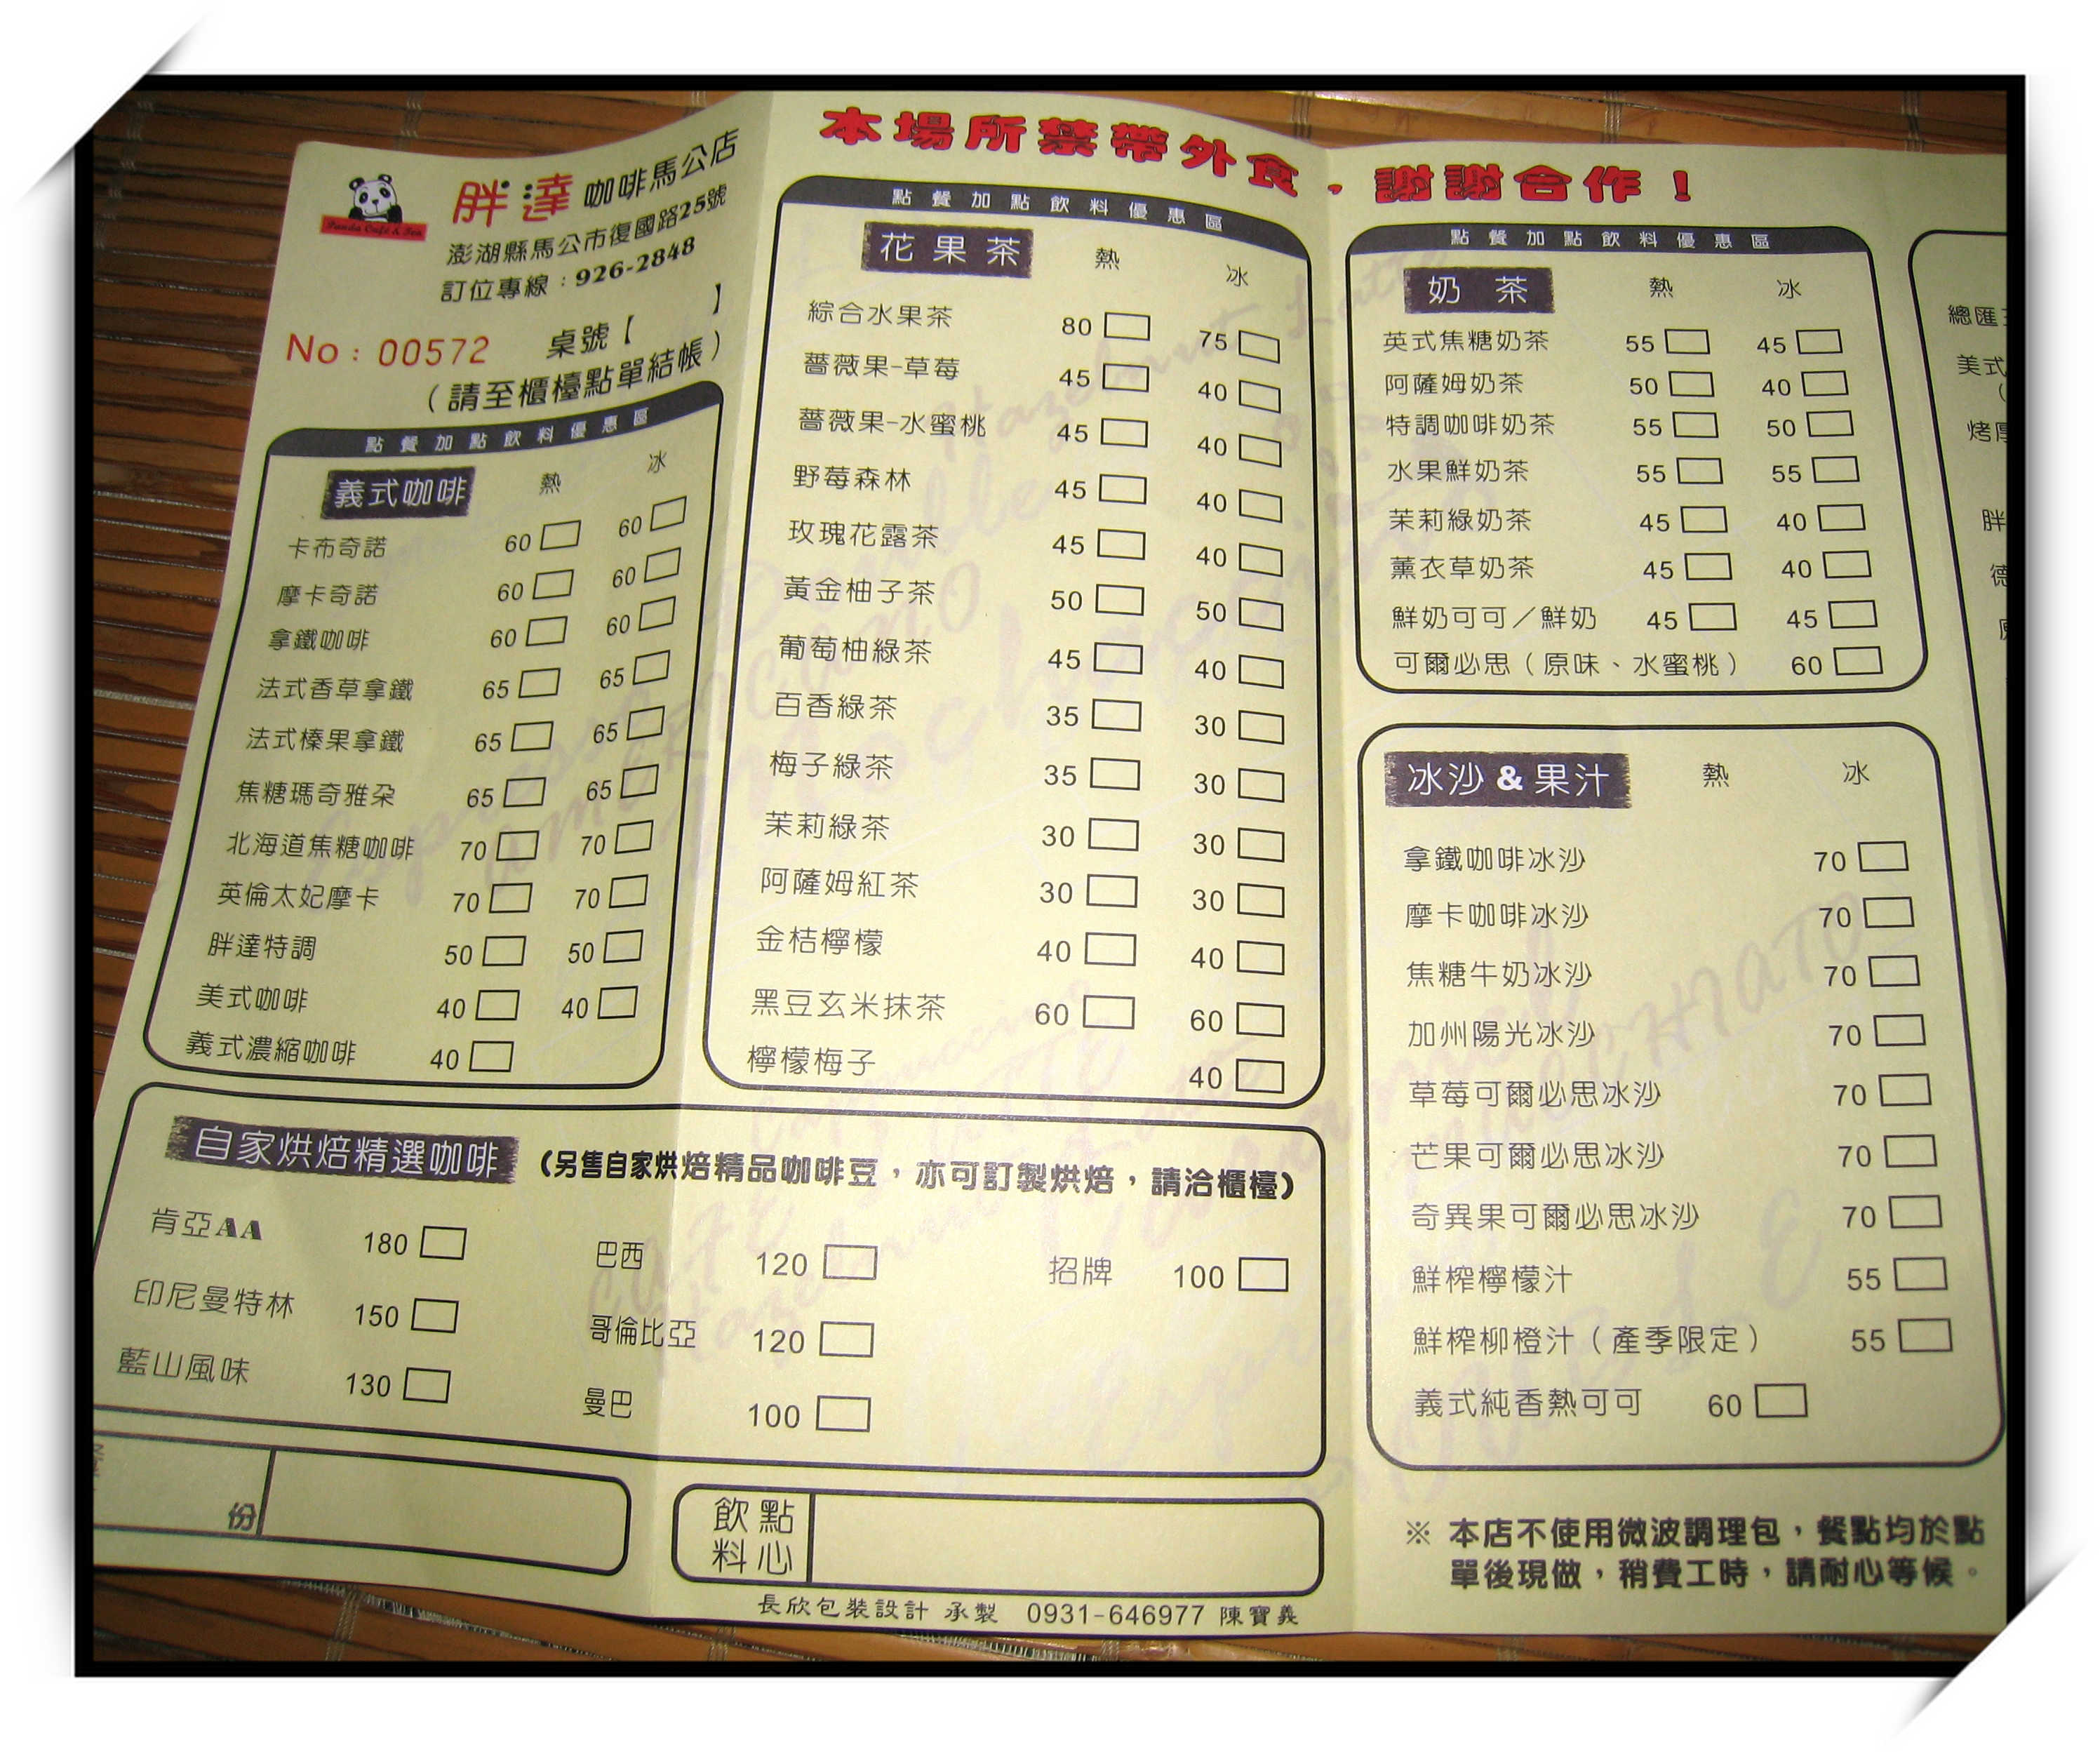 本場所禁帶外食，謝謝合作！
Panda Café & Tea
胖達 咖啡馬公店
澎湖縣馬公市復國路25號
訂位專線：926-2848
No：00572 桌號【 】
（請至櫃檯點單結帳）
點餐加點飲料優惠區
義式咖啡 熱 冰
卡布奇諾 60 60
摩卡奇諾 60 60
拿鐵咖啡 60 60
法式香草拿鐵 65 65
法式榛果拿鐵 65 65
焦糖瑪奇雅朵 65 65
北海道焦糖咖啡 70 70
英倫太妃摩卡 70 70
胖達特調 50 50
美式咖啡 40 40
義式濃縮咖啡 40
點餐加點飲料優惠區
花果茶 熱 冰
綜合水果茶 80 75
薔薇果-草莓 45 40
薔薇果-水蜜桃 45 40
野莓森林 45 40
玫瑰花露茶 45 40
黃金柚子茶 50 50
葡萄柚綠茶 45 40
百香綠茶 35 30
梅子綠茶 35 30
茉莉綠茶 30 30
阿薩姆紅茶 30 30
金桔檸檬 40 40
黑豆玄米抹茶 60 60
檸檬梅子 40
點餐加點飲料優惠區
奶茶 熱 冰
英式焦糖奶茶 55 45
阿薩姆奶茶 50 40
特調咖啡奶茶 55 50
水果鮮奶茶 55 55
茉莉綠奶茶 45 40
薰衣草奶茶 45 40
鮮奶可可／鮮奶 45 45
可爾必思（原味、水蜜桃） 60
冰沙&果汁 熱 冰
拿鐵咖啡冰沙 70
摩卡咖啡冰沙 70
焦糖牛奶冰沙 70
加州陽光冰沙 70
草莓可爾必思冰沙 70
芒果可爾必思冰沙 70
奇異果可爾必思冰沙 70
鮮榨檸檬汁 55
鮮榨柳橙汁（產季限定） 55
義式純香熱可可 60
自家烘焙精選咖啡 （另售自家烘焙精品咖啡豆，亦可訂製烘焙，請洽櫃檯）
肯亞AA 180 巴西 120 招牌 100
印尼曼特林 150 哥倫比亞 120
藍山風味 130 曼巴 100
份
飲料 點心
※ 本店不使用微波調理包，餐點均於點
單後現做，稍費工時，請耐心等候。
長欣包裝設計 承製 0931-646977 陳寶義
總匯
美式
烤厚
胖
德